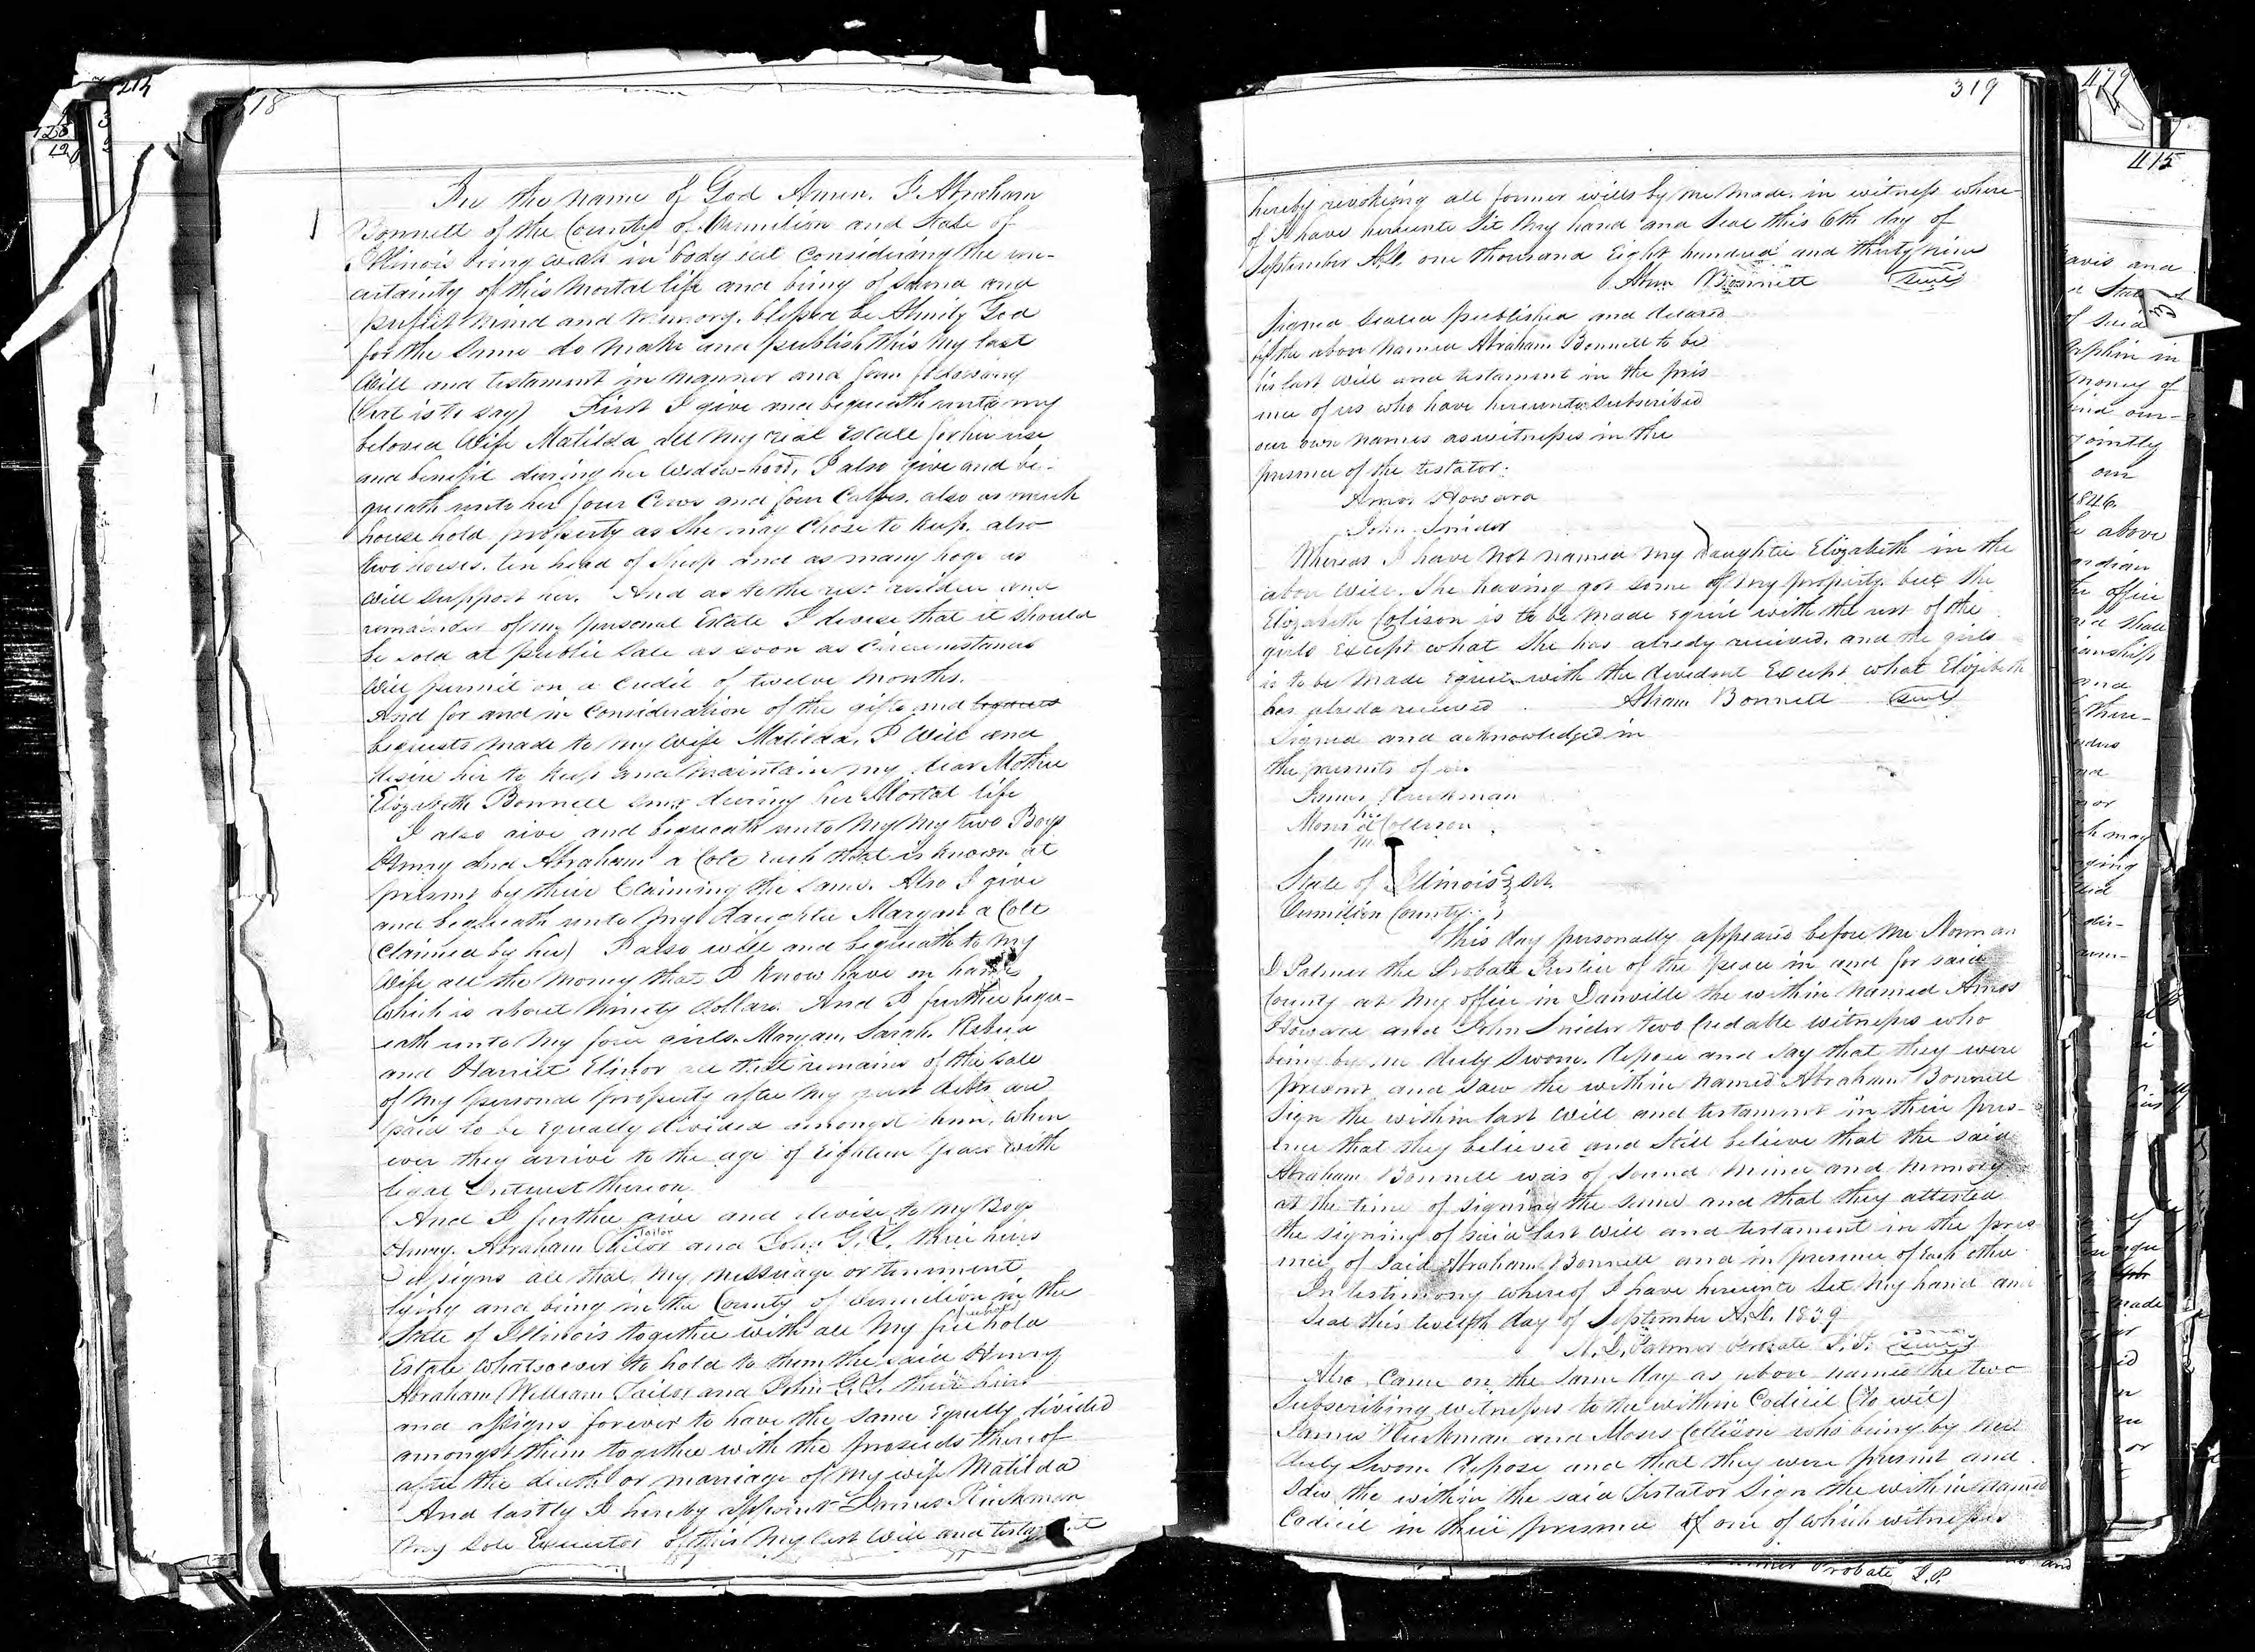 318
In the name of God Amen. I Abraham
Bonnell of the County of Vermilion and State of
Illinois being weak in body but considering the un-
certainty of this Mortal life and being of Sound and
perfect mind and memory. blessed be Almity God
for the Same do make and publish this my last
Will and testament in manner and form following
(that is to say) First I give and bequeath unto my
beloved Wife Matilda all my real Estate for her use
and benefit during her widow-hood, I also give and be-
queath unto her four Cows and four Calves. also as much
house hold property as She may Chose to keep. also
two horses. ten head of Sheep and as many hogs as
will Support her. And as to the rest residue and
remainder of my personal Estate I devise that it should
be sold at public Sale as soon as Circumstances
Will permit on a Credit of twelve months.
And for and in Consideration of the gifts and legacies
bequests made to my Wife Matilda, I Will and
desire her to keep and maintain my dear Mother
Elizabeth Bonnell during her Mortal life
I also give and bequeath unto My my two Boys
Henry and Abraham a Colt each that is known at
present by their Claiming the same. Also I give
and bequeath unto my daughter Maryan a Colt
(Claimed by her) I also will and bequeath to my
Wife all the money that I know have on hand
Which is about Ninety dollars. And I further beque-
ath unto My four girls. Maryan, Sarah. Rebeca
and Harriet Elinor all that remains of the Sale
of My personal property after My just debts are
paid to be Equally divided amongst them, When
ever they arrive to the age of Eighteen years with
legal Interest thereon.
And I further give and devise to My Boys
Tailor
Henry. Abraham Tailor and John G. S. their heirs
& assigns all that My messuage or teniment
lying and being in the County of Vermilion in the
freehold
State of Illinois together with all My free hold
Estate Whatsoever to hold to them the said Henry
Abraham William Tailor and John G. S. their heirs
and assigns forever to have the same Equelly divided
amongst them together with the proseeds thereof
after the death or marriage of my wife Matilda
And lastly I hereby appoint James Rickman
my Sole Executor of this My last Will and testament
319
hereby revoking all former wills by me Made. in witness where-
of I have hereunto Set My hand and Seal this 6th day of
September A.D. one thousand Eight hundred and thirty nine
Abm Bonnell (seal)
Signed Sealed published and declared
by the above named Abraham Bonnell to be
his last Will and testament in the pres-
ence of us who have hereunto Subscribed
our own names as witnesses in the
presence of the testator.
Amos Howard
John Snider
Whereas I have Not named my daughter Elizabeth in the
above Will. She having got some of my property. but the
Elizabeth Colison is to be made equil with the rest of the
girls Except what She has alredy received. and the girls
is to be made equil with the devident Except what Elizibeth
has alredo received Abram Bonnell (seal)
Signed and acknowledged in
the presents of us
James Rickman
his
Moses Collison
m
State of Illinois } Sct.
Vermilion County. }
This day personally appeared before me Norman
D Palmer the Probate Justice of the peace in and for said
County at My office in Danville the within named Amos
Howard and John Snider two Credable witnesses who
being by me duly Sworn. depose and Say that they were
present and Saw the within named Abraham Bonnell
Sign the within last Will and testament in their pres-
ence that they believed and Still believe that the said
Abraham Bonnell was of Sound Mind and Memory
at the time of signing the same and that they attested
the signing of said last Will and testament in the pres-
ence of Said Abraham Bonnell and in presence of each other.
In testimony whereof I have hereunto Set My hand and
Seal this twelfth day of September A.D. 1839
N. D. Palmer Probate J. P. (seal)
Also Came on the Same day as above named the two
Subscribing witnesses to the within Codicil (to wit)
James Rickman and Moses Collison who being by me
duly Sworn depose and that they were present and
Saw the within the said Testator Sign the within named
Codicil in their presence of one of which witnesses
214
479
415
1846.
Probate J.P.